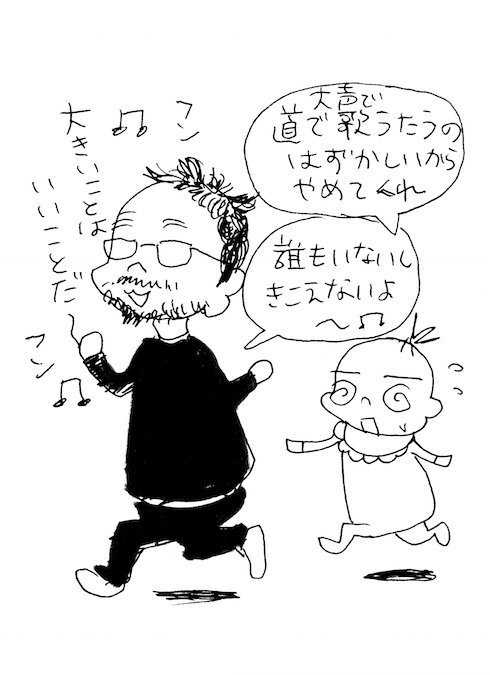 大声で
道で歌うたうの
はずかしいから
やめてくれ
誰もいないし
きこえないよ
〜♫
フン
♫
大きいことは
いいことだ
フン
♫